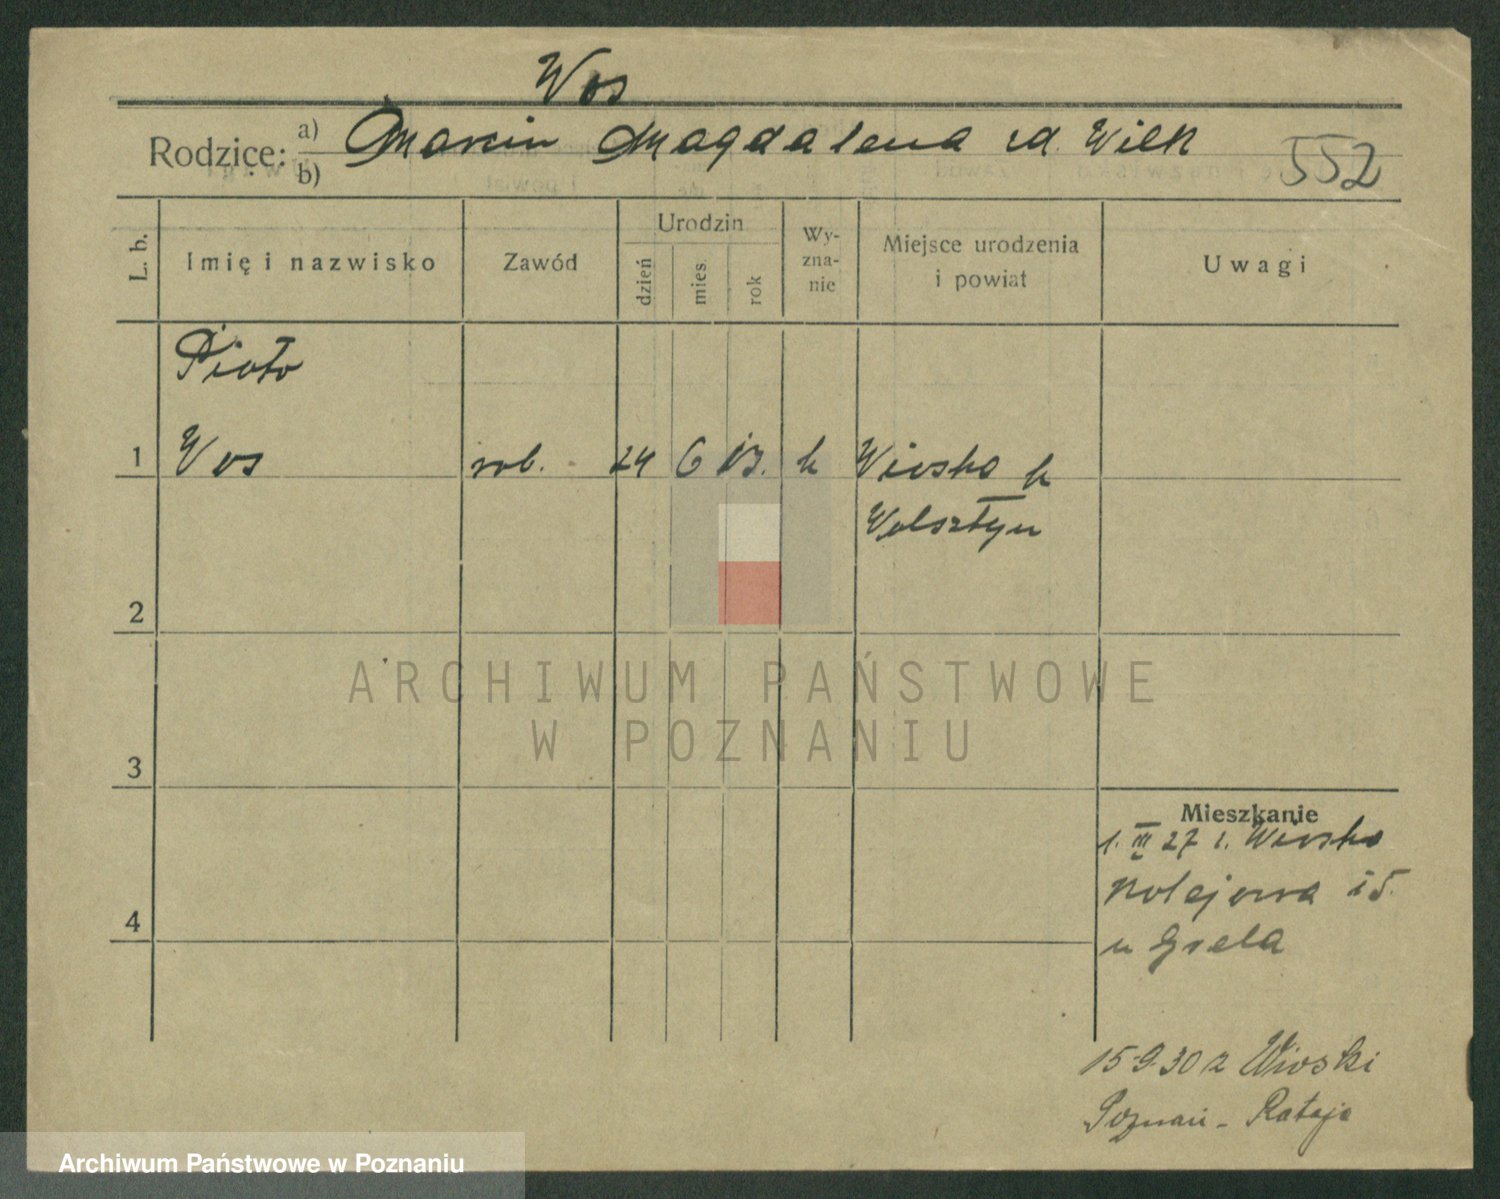 Wos
Rodzice: a) Marcin Magdalena zd. Wilk
b)
552
L. b.
Imię i nazwisko
Zawód
Urodzin
dzień
mies.
rok
Wy-
zna-
nie
Miejsce urodzenia
i powiat
Uwagi
Piotr
1 Wos rob. 24 6 13. k Wiosko k
Wolsztyn
2
3
4
Mieszkanie
1. III 27 z. Wiosko
Kolejowa 15.
u Grela
15-9-30 z Wioski
Poznań - Rataje
ARCHIWUM PAŃSTWOWE
W POZNANIU
Archiwum Państwowe w Poznaniu